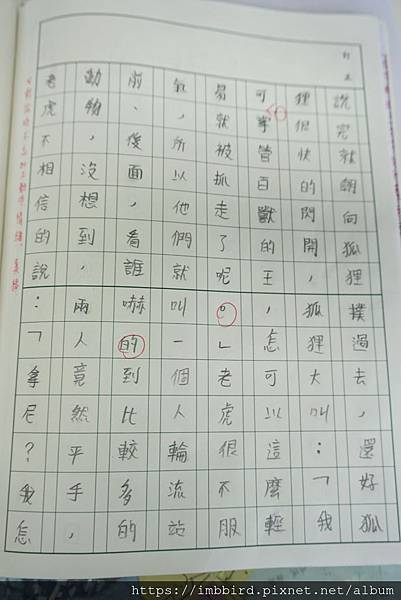 說完就朝向狐狸撲過去,還好狐
狸很快的閃開,狐狸大叫:「我
可掌管百獸的王,怎可以這麼輕
易就被抓走了呢。」老虎很不服
氣,所以他們就叫一個人輪流站
前、後面,看誰嚇的到比較多的
動物,沒想到,兩人竟然平手,
老虎不相信的說:「拿尼?我怎
https://imbbird.pixnet.net/album